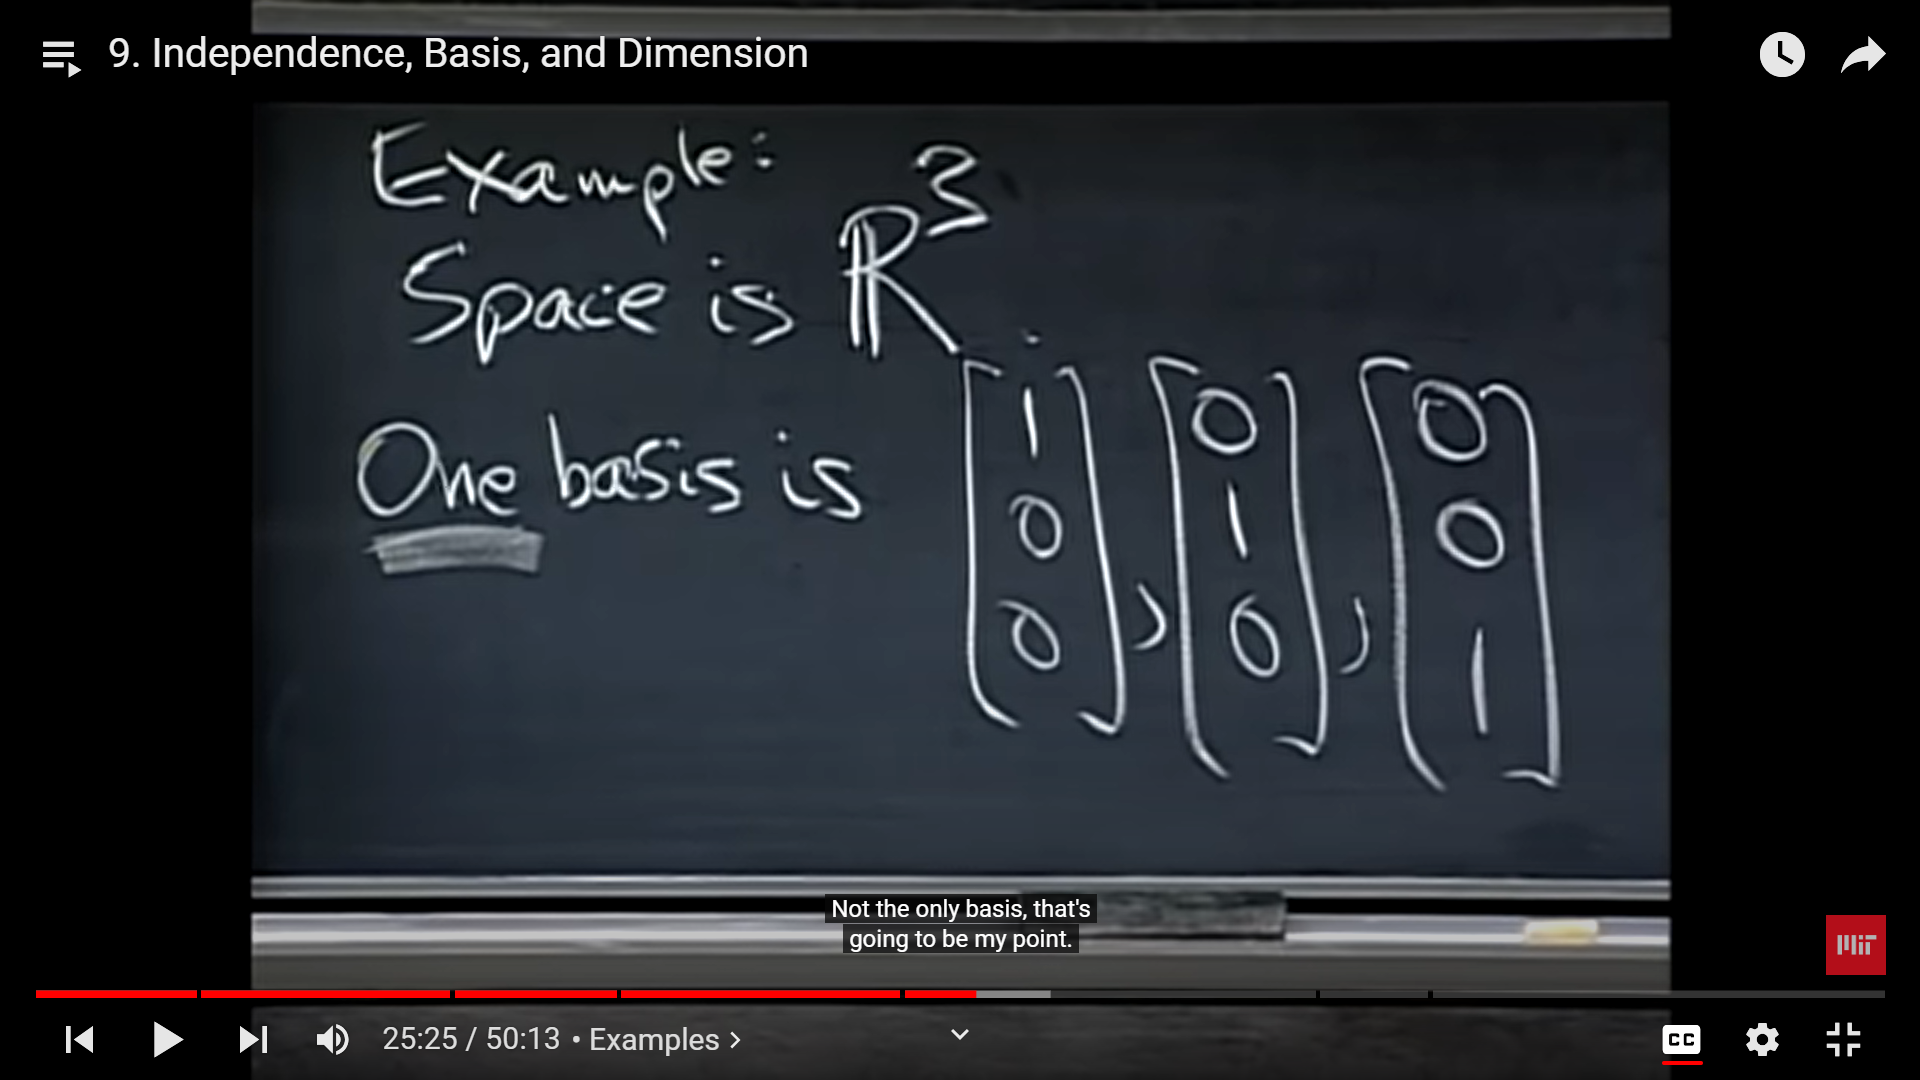 9. Independence, Basis, and Dimension
Example:
Space is ℝ³
One basis is [1 0 0], [0 1 0], [0 0 1]
Not the only basis, that's
going to be my point.
MIT
25:25 / 50:13 • Examples >
CC